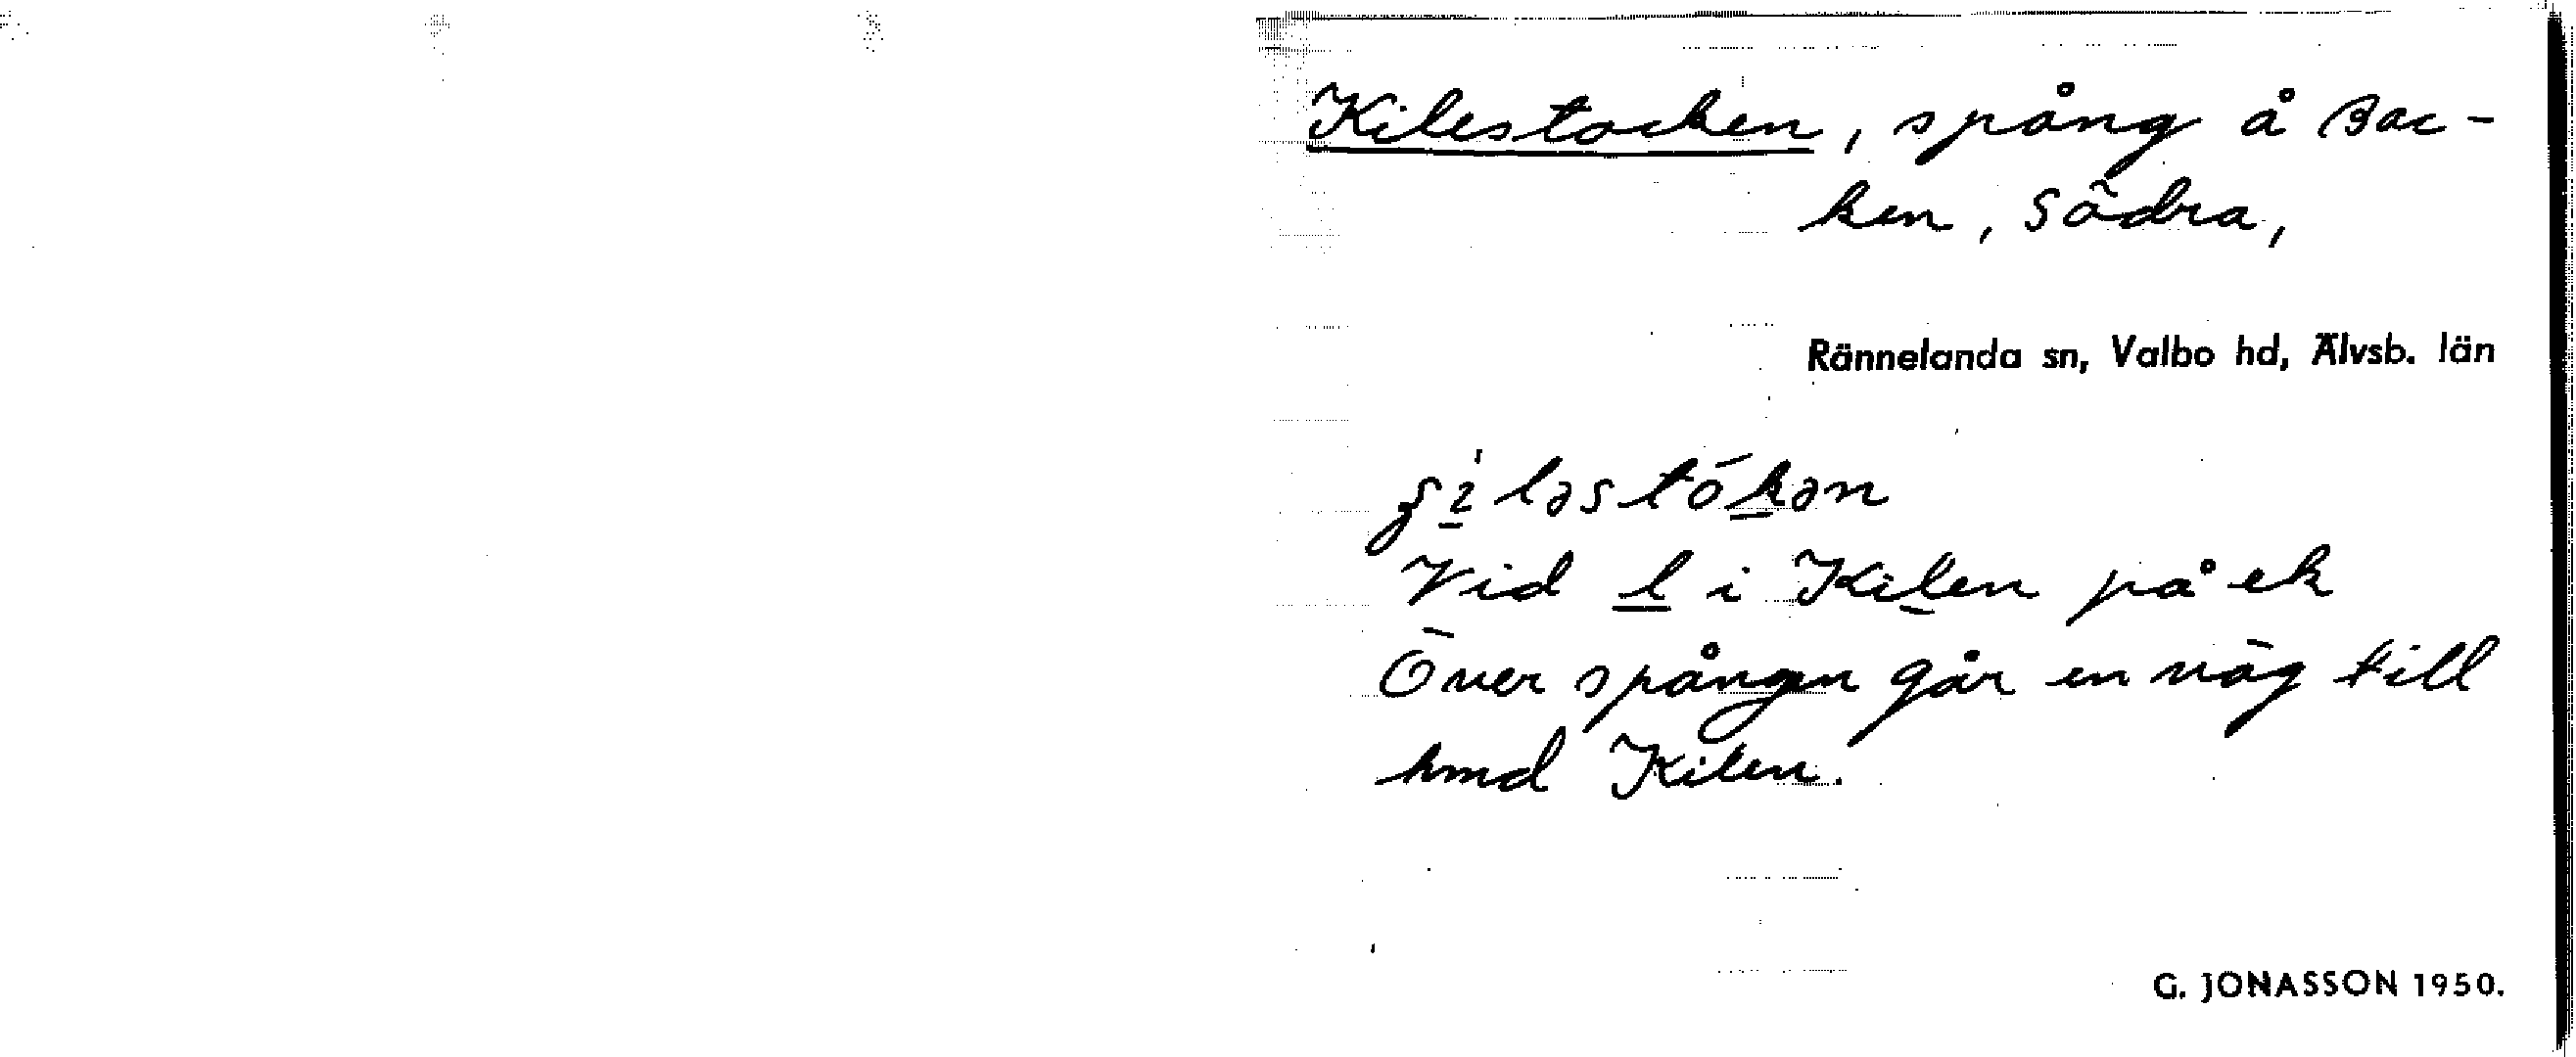 Kilestocken, spång å Bac-
ken, Södra,
Rännelanda sn, Valbo hd, Älvsb. län
Vid l i Kilen på ek
Över spången går en väg till
hmd Kilen.
G. JONASSON 1950.